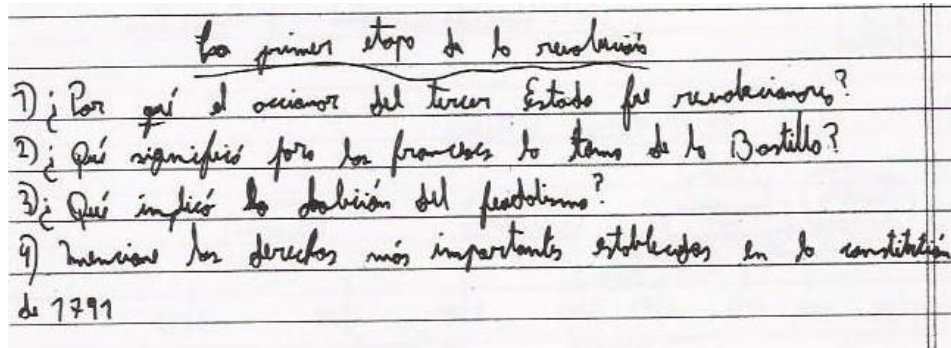 La primer etapa de la revolución
1) ¿Por qué el accionar del tercer Estado fue revolucionario?
2) ¿Qué significó para los franceses la toma de la Bastilla?
3) ¿Qué implicó la abolición del feudalismo?
4) Mencione los derechos más importantes establecidos en la constitución
de 1791